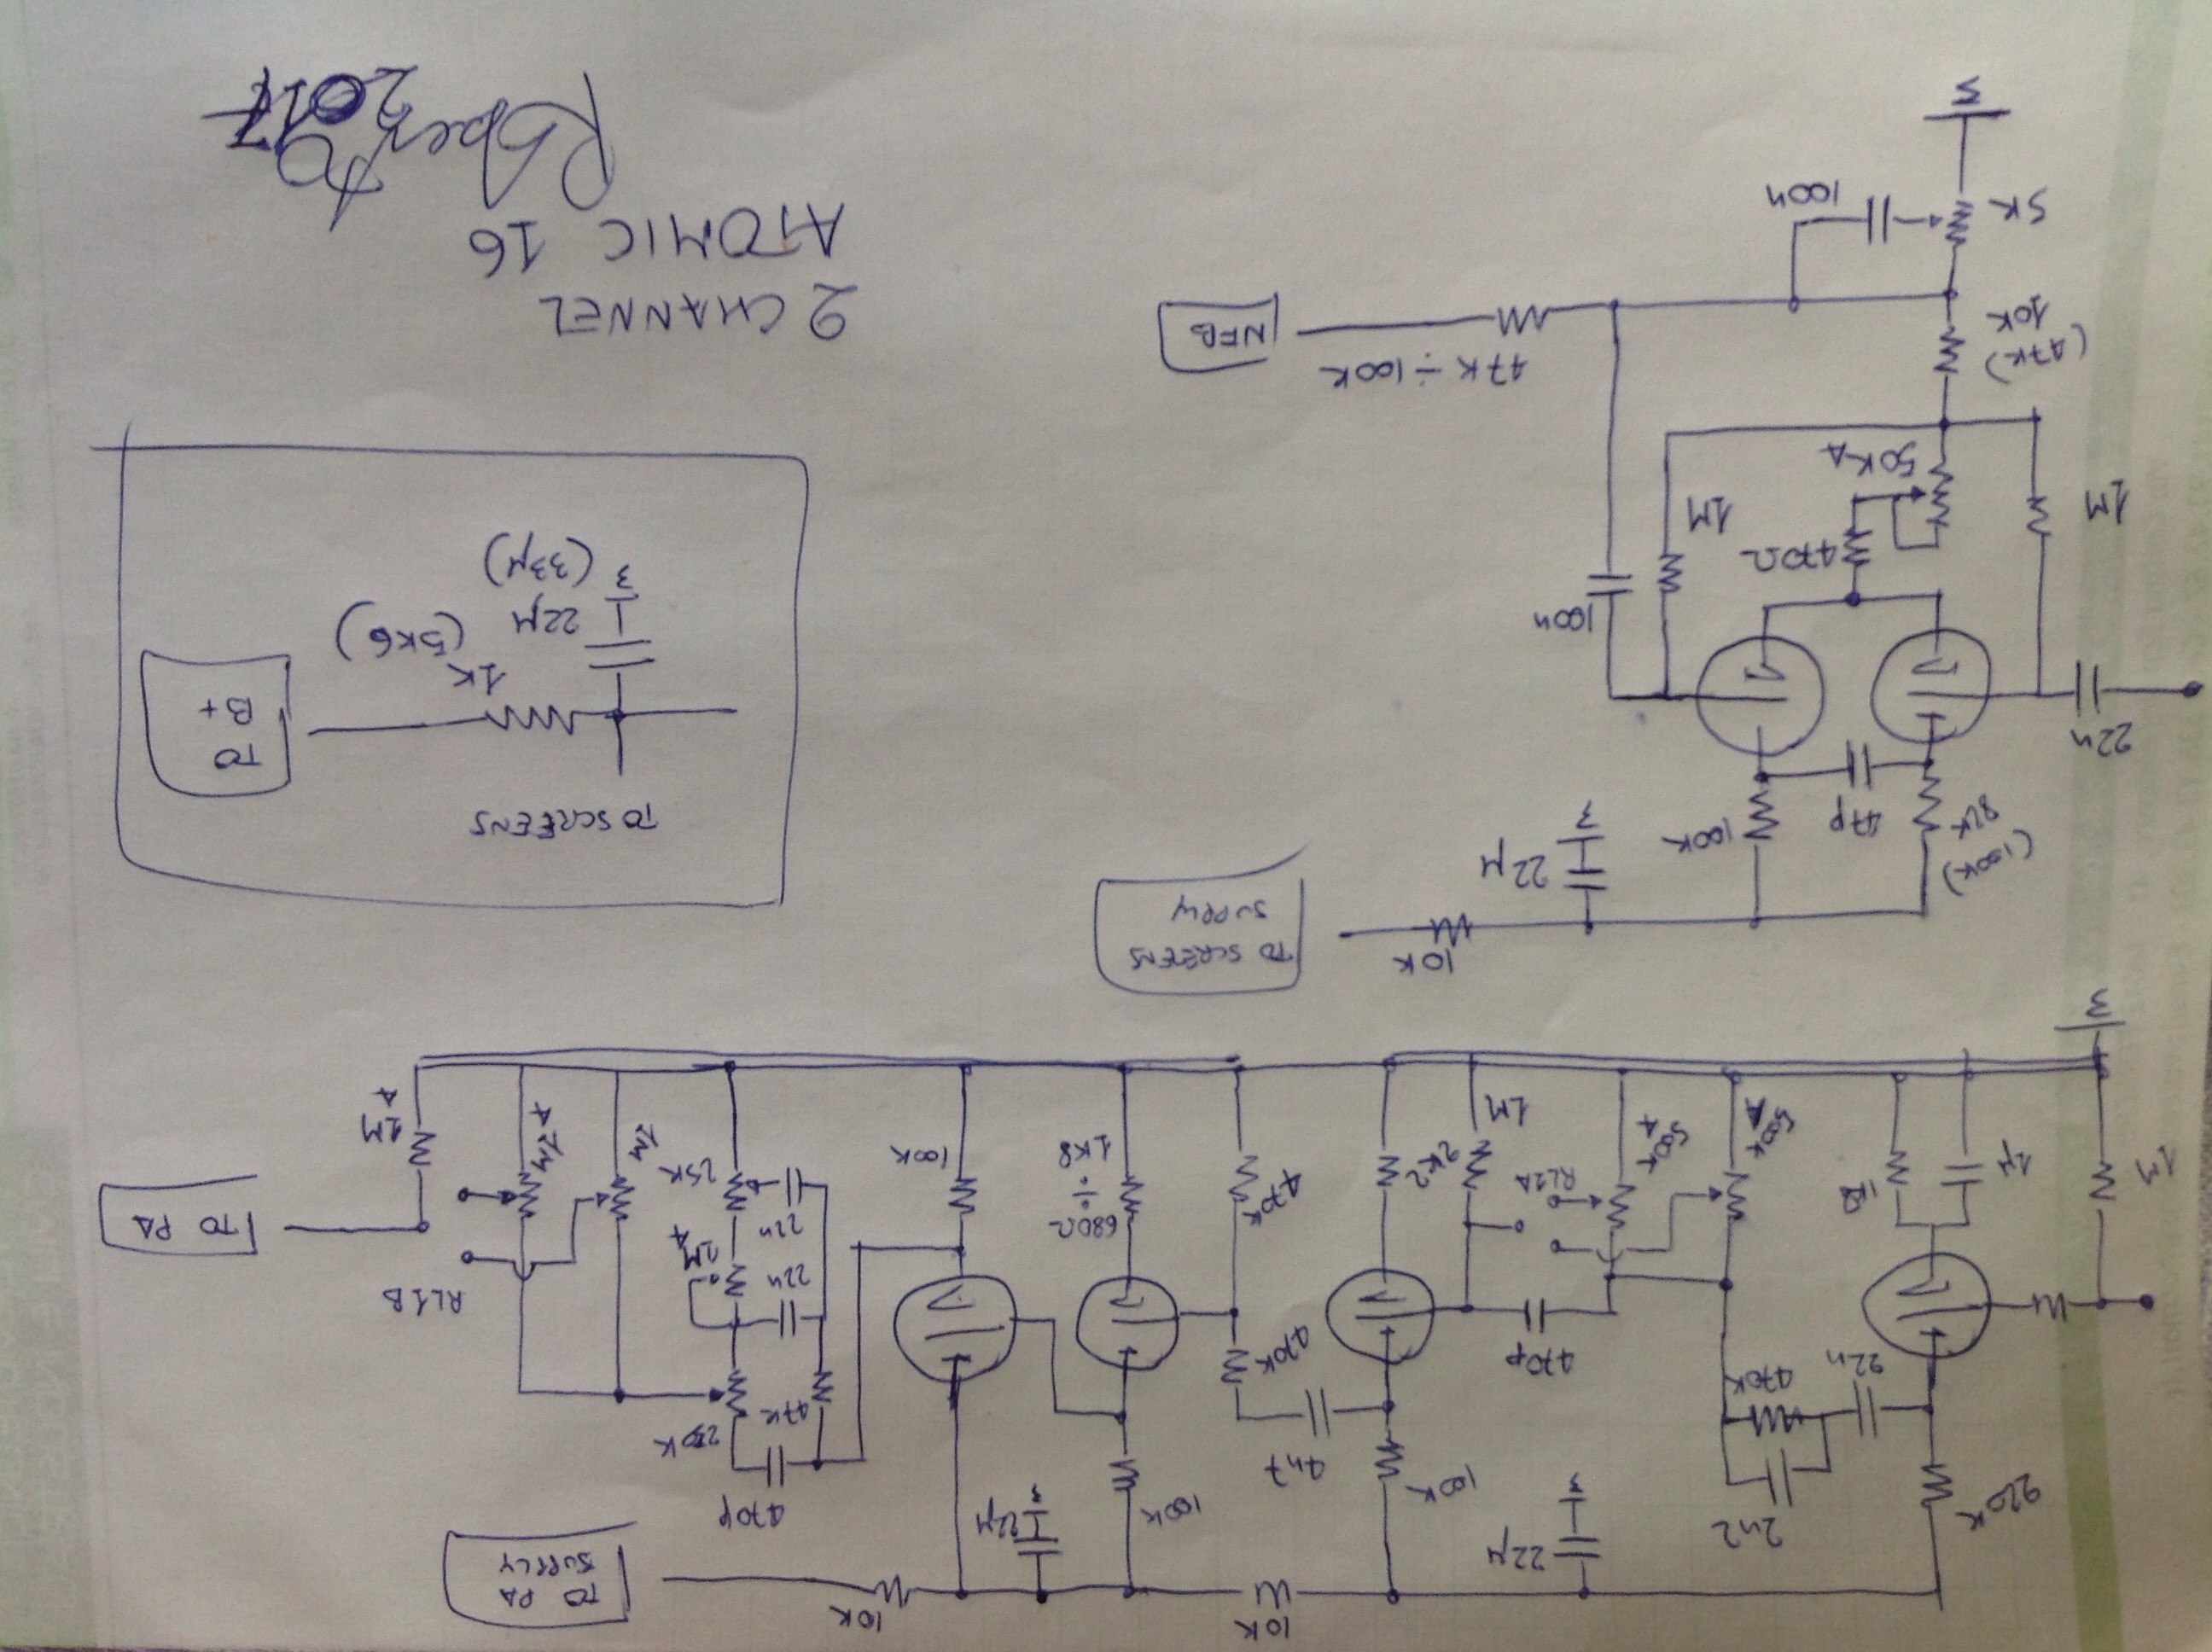 10K
10K
TO PA
SUPPLY
220K
2n2
22µ
100K
4n7
100K
22µ
470p
22n
470K
470p
470K
250K
47K
1M
1µ
500K
A
500K
A
RL1A
2K2
1M
470K
680Ω
÷
1K8
100K
22n
22n
1M
A
25K
1M
1M
A
RL1B
1M
A
TO PA
10K
TO SCREENS
SUPPLY
22µ
82K
(100K)
47p
100K
22n
1M
470Ω
50KA
1M
100n
10K
(47K)
47K ÷ 100K
NFB
5K
100n
TO SCREENS
TO
B+
1K
(5K6)
22µ
(33µ)
2 CHANNEL
ATOMIC 16
Roberto
2017